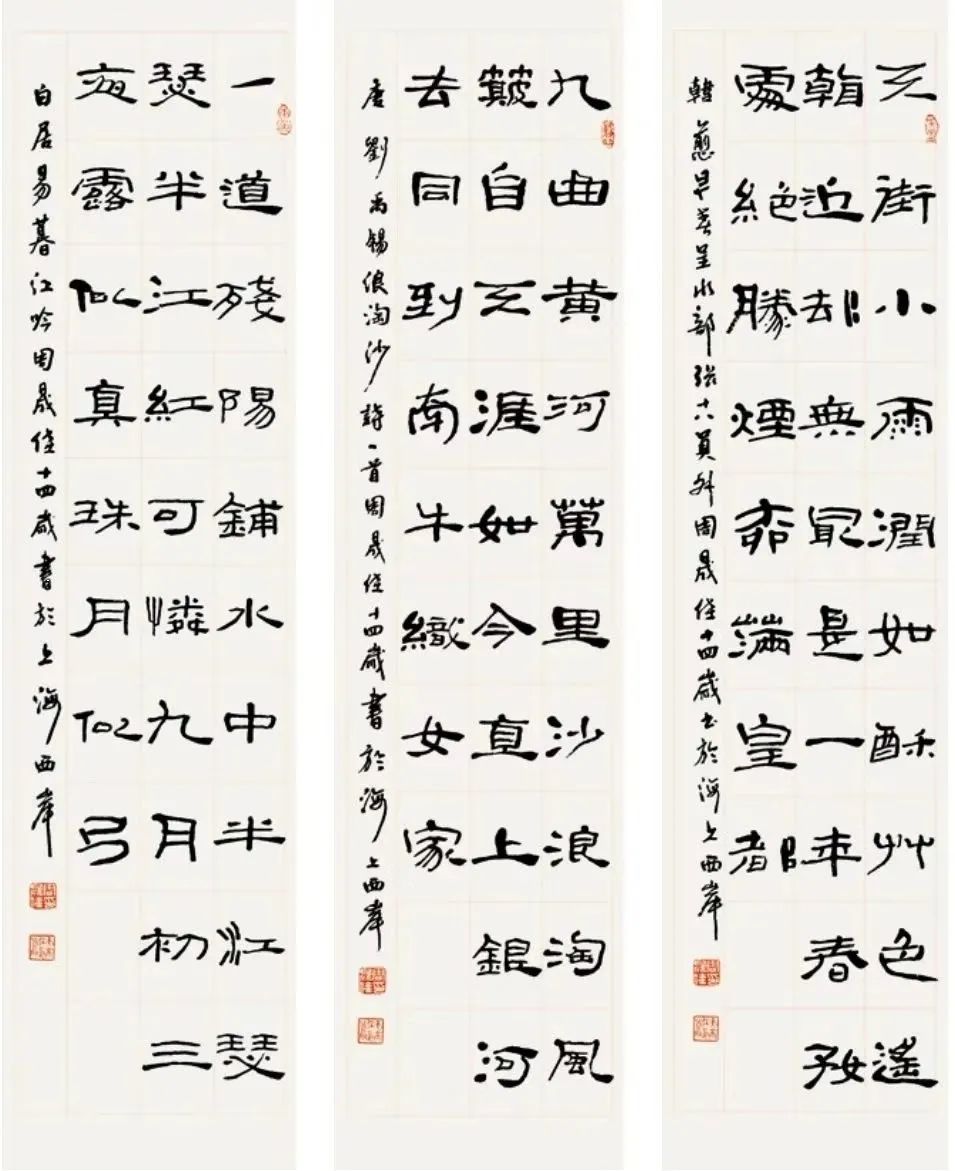 天街小雨潤如酥艸色遙
看近却無最是一年春好
處絕勝煙柳滿皇都
韓愈早春呈水部張十八員外周晟佳十四歲書於海上西岸
九曲黃河萬里沙浪淘風
簸自天涯如今直上銀河
去同到南牛織女家
唐劉禹錫浪淘沙詩一首周晟佳十四歲書於海上西岸
一道殘陽鋪水中半江瑟
瑟半江紅可憐九月初三
夜露似真珠月似弓
白居易暮江吟周晟佳十四歲書於上海西岸